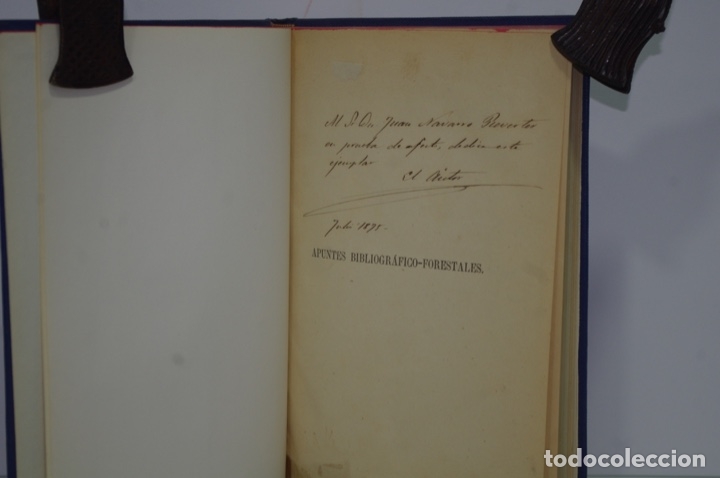 Al Sr. Dn. Juan Navarro Reverter
en prueba de afecto, dedica este
ejemplar
El Autor
Julio 1878.
APUNTES BIBLIOGRÁFICO-FORESTALES.
todocoleccion